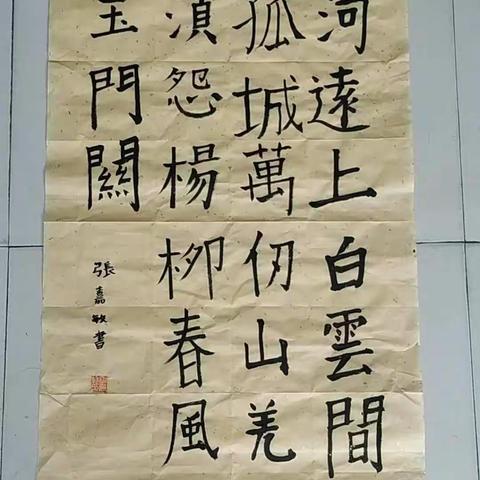 河遠上白雲間
孤城萬仞山羌
湏怨楊柳春風
玉門關
張嘉敏書